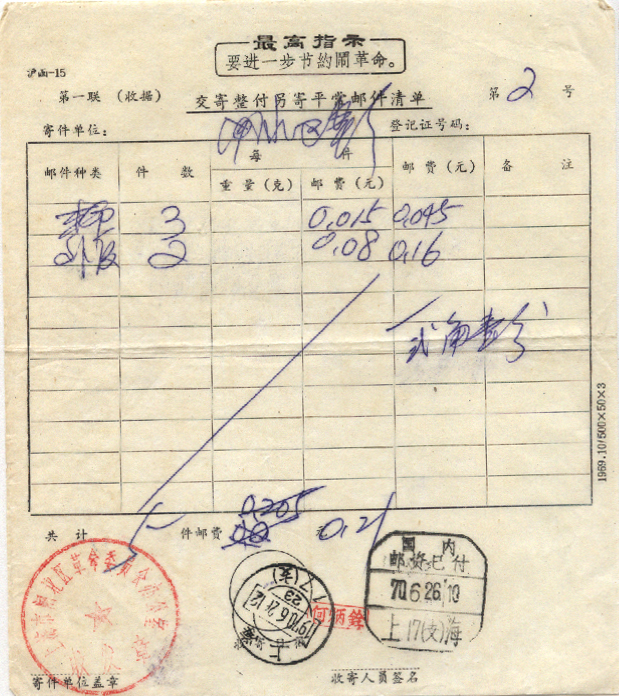 最高指示
要进一步节約鬧革命。
沪函-15
第一联 (收据) 交寄整付另寄平常邮件清单 第 2 号
寄件单位: 登记证号码:
邮件种类 件数 每件 邮费(元) 备注
重量(克) 邮费(元)
3 0.015 0.045
外埠 2 0.08 0.16
弍角壹分
1969.10/500×50×3
0.205
共计 5 件邮费 元 0.21
国内
邮资已付
70.6.26.19
上17(支)海
17(支)
23
1970.6.26.12
上海
何炳鋒
寄件单位盖章 收寄人员签名